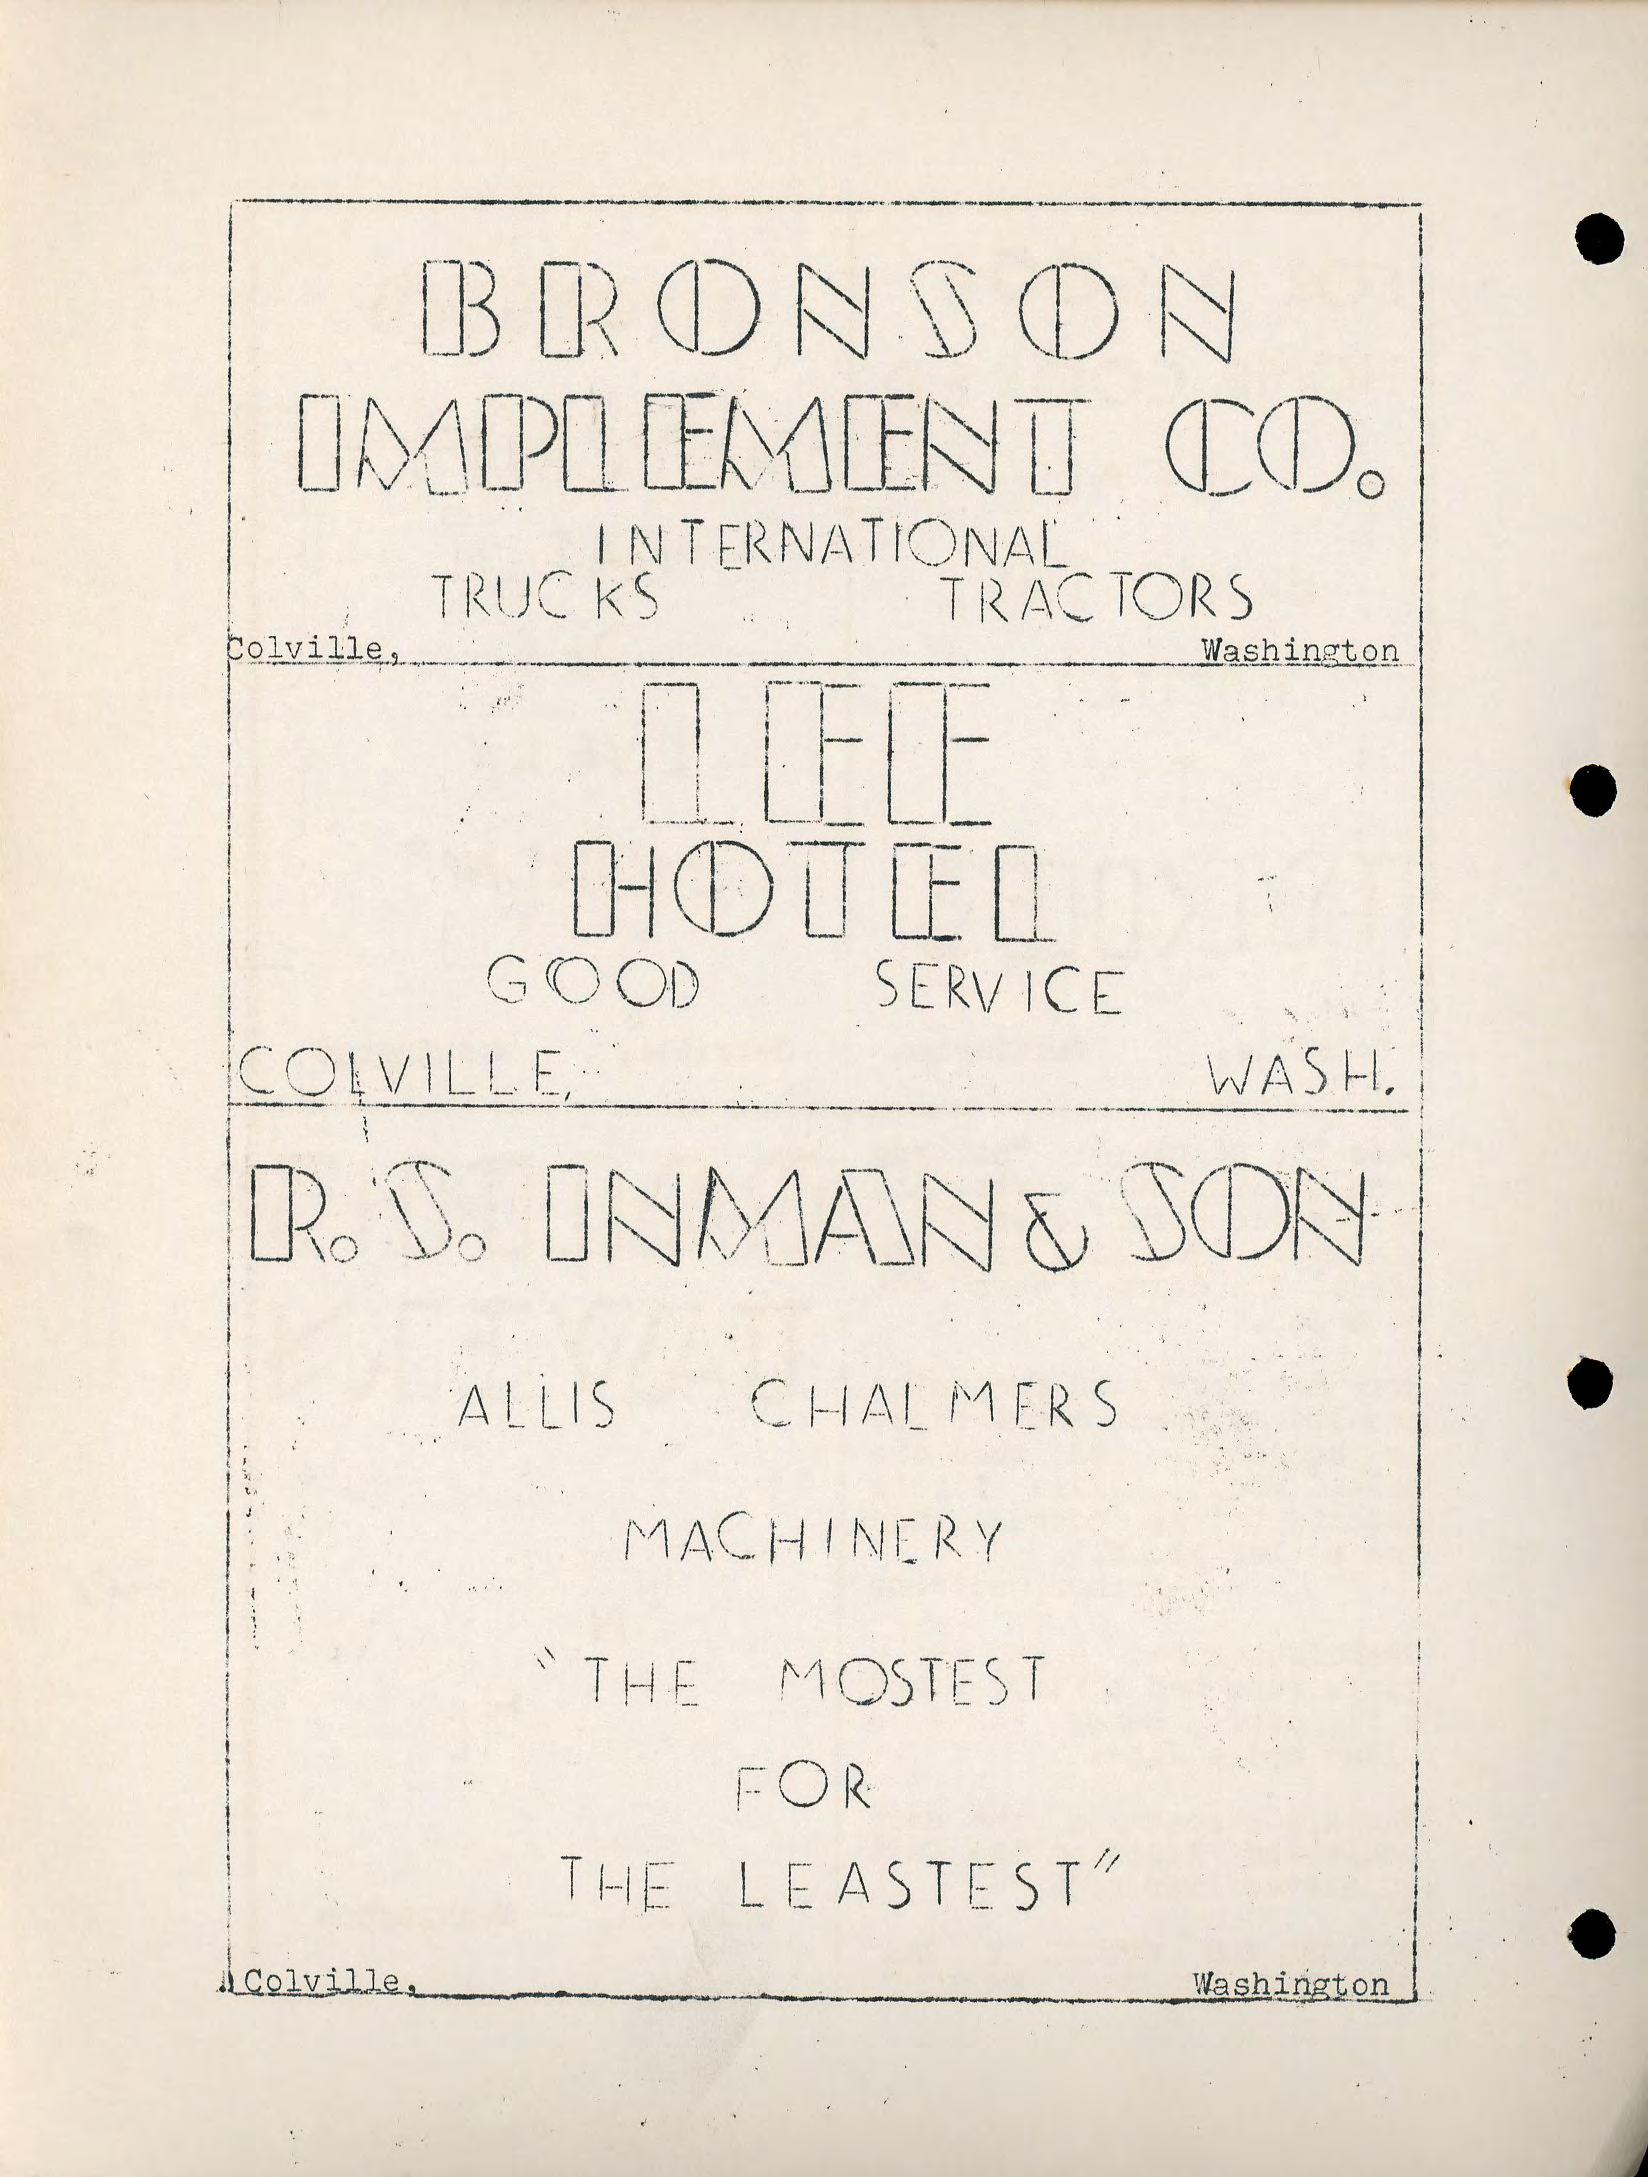 BRONSON
IMPLEMENT CO.
INTERNATIONAL
TRUCKS TRACTORS
Colville, Washington
LEE
HOTEL
GOOD SERVICE
COLVILLE, WASH.
R. S. INMAN & SON
ALLIS CHALMERS
MACHINERY
"THE MOSTEST
FOR
THE LEASTEST"
Colville, Washington